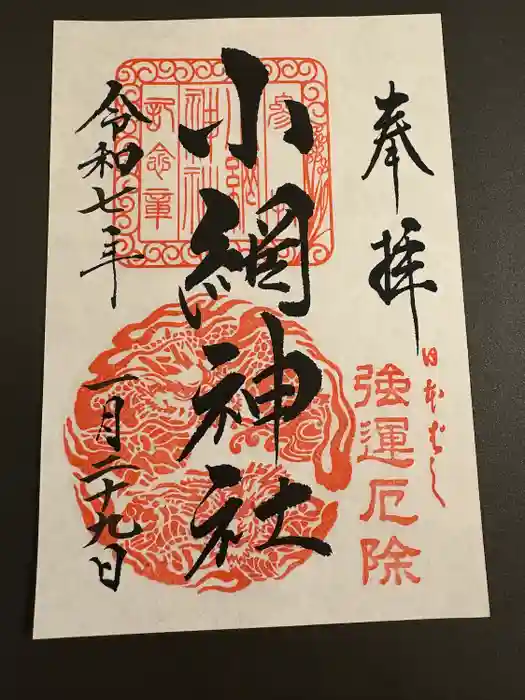 奉拝
日本ばし
強運厄除
小網神社
令和七年
一月二十九日
記念章